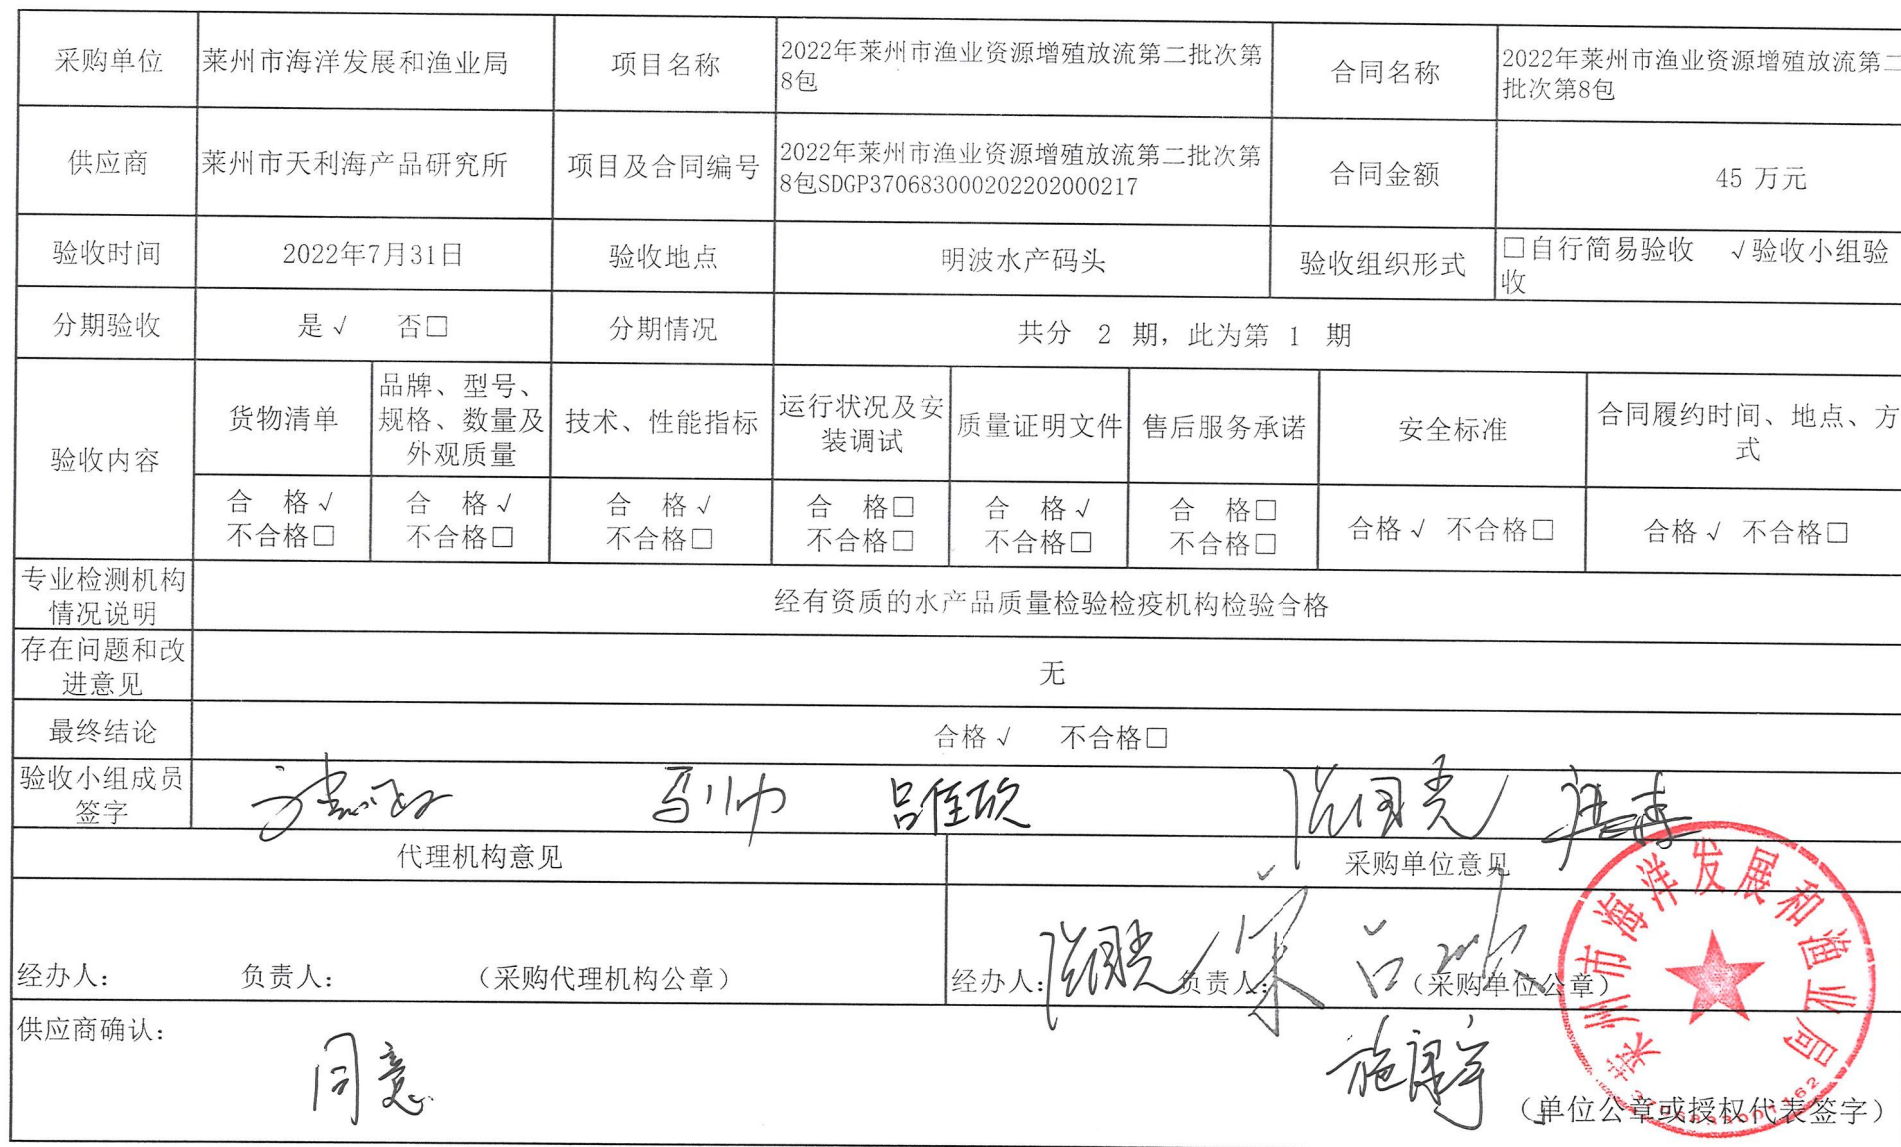 采购单位 莱州市海洋发展和渔业局 项目名称 2022年莱州市渔业资源增殖放流第二批次第
8包 合同名称 2022年莱州市渔业资源增殖放流第二
批次第8包
供应商 莱州市天利海产品研究所 项目及合同编号 2022年莱州市渔业资源增殖放流第二批次第
8包SDGP370683000202202000217 合同金额 45 万元
验收时间 2022年7月31日 验收地点 明波水产码头 验收组织形式 □自行简易验收 √验收小组验
收
分期验收 是√ 否□ 分期情况 共分 2 期，此为第 1 期
验收内容
货物清单
品牌、型号、
规格、数量及
外观质量
技术、性能指标
运行状况及安
装调试
质量证明文件
售后服务承诺
安全标准
合同履约时间、地点、方
式
合 格√
不合格□
合 格√
不合格□
合 格√
不合格□
合 格□
不合格□
合 格√
不合格□
合 格□
不合格□
合格√ 不合格□
合格√ 不合格□
专业检测机构
情况说明
经有资质的水产品质量检验检疫机构检验合格
存在问题和改
进意见
无
最终结论 合格√ 不合格□
验收小组成员
签字
马帅 吕佳欣
代理机构意见 采购单位意见
经办人： 负责人： （采购代理机构公章）
经办人： 负责人： （采购单位公章）
供应商确认：
同意
施
（单位公章或授权代表签字）
莱州市海洋发展和渔业局